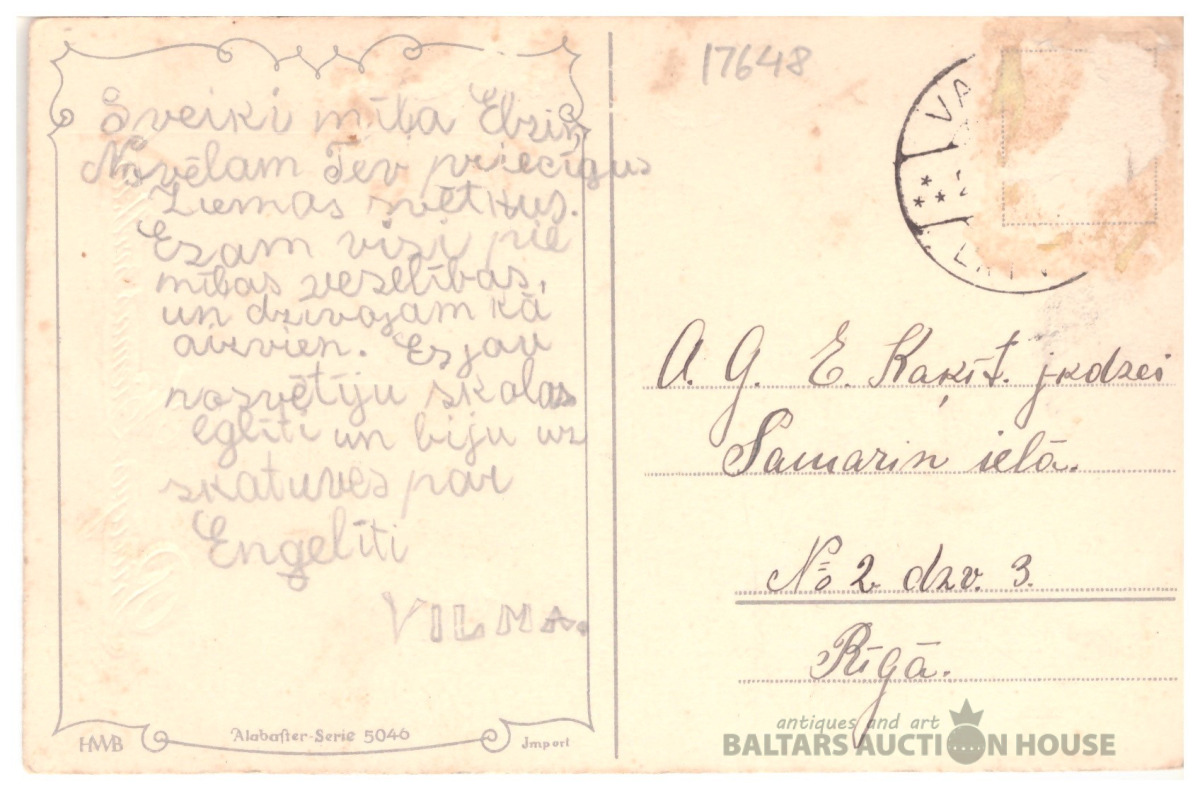 Sveiki mīļa Elziņ
Novēlam Tev priecīgus
Ziemas svētkus.
Esam visi pie
mīļas veselības,
un dzīvojam kā
aizvien. Es jau
nosvētīju skolas
eglīti un biju uz
skatuves par
Eņģelīti
VILMA.
HWB
Alabaster-Serie 5046
Import
17648
VA
A. G. E. jkdzei
Samarin ielā.
No 2 dzv. 3.
Rīgā.
antiques and art
BALTARS AUCTION HOUSE